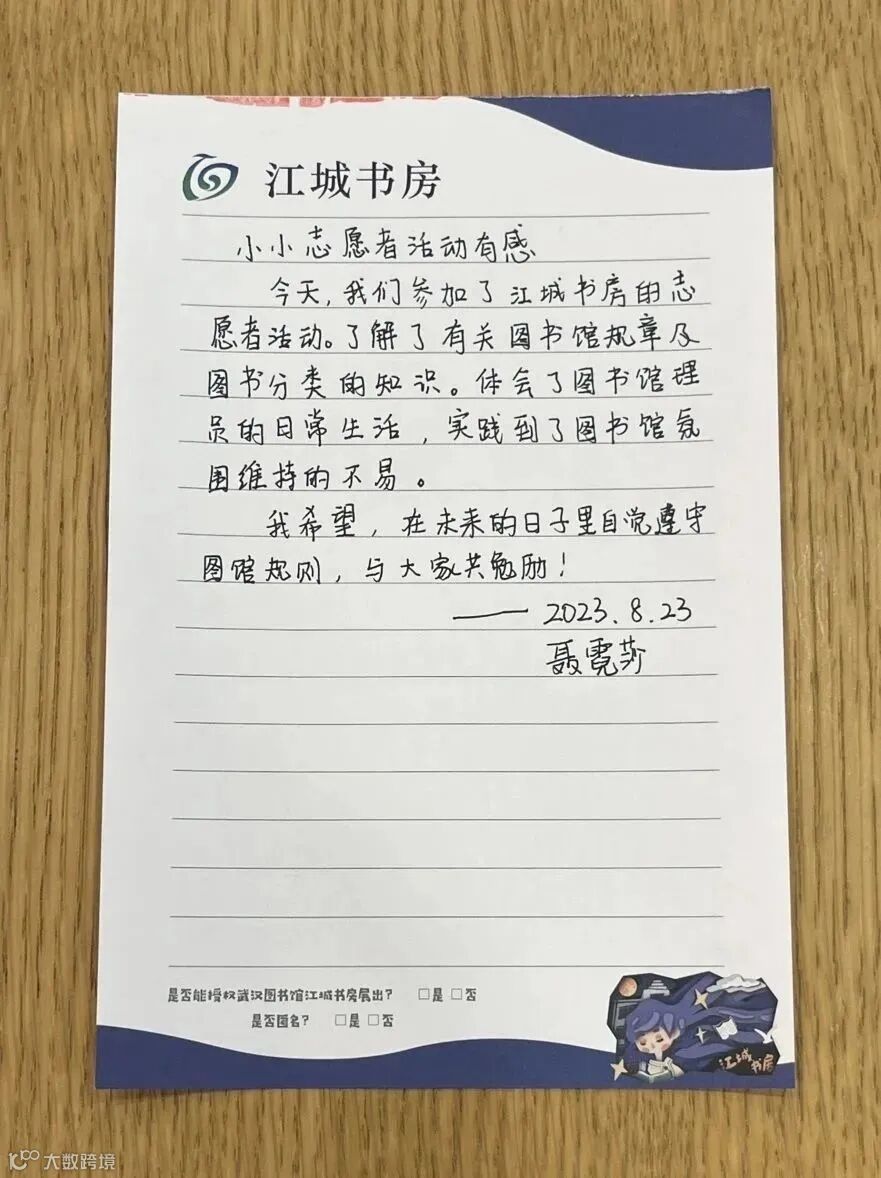 江城书房
小小志愿者活动有感
今天,我们参加了江城书房的志
愿者活动。了解了有关图书馆规章及
图书分类的知识。体会了图书馆理
员的日常生活,实践到了图书馆氛
围维持的不易。
我希望,在未来的日子里自觉遵守
图馆规则,与大家共勉励!
—— 2023.8.23
聂霓莎
是否能授权武汉图书馆江城书房展出? □是 □否
是否匿名? □是 □否
江城
书房
大数跨境